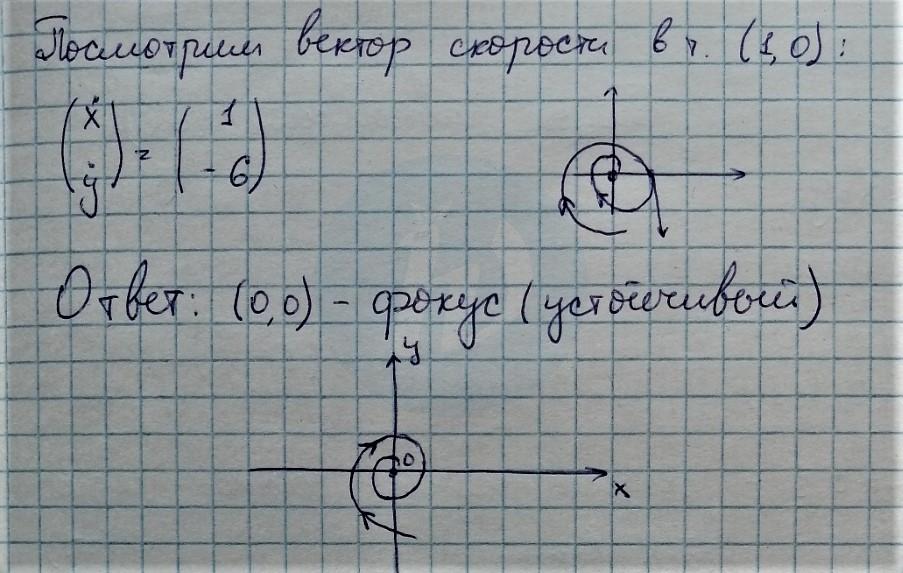 Посмотрим вектор скорости в т. (1,0):
(ẋ ẏ) = (1 -6)
Ответ: (0,0) - фокус (устойчивый)
y
0
x